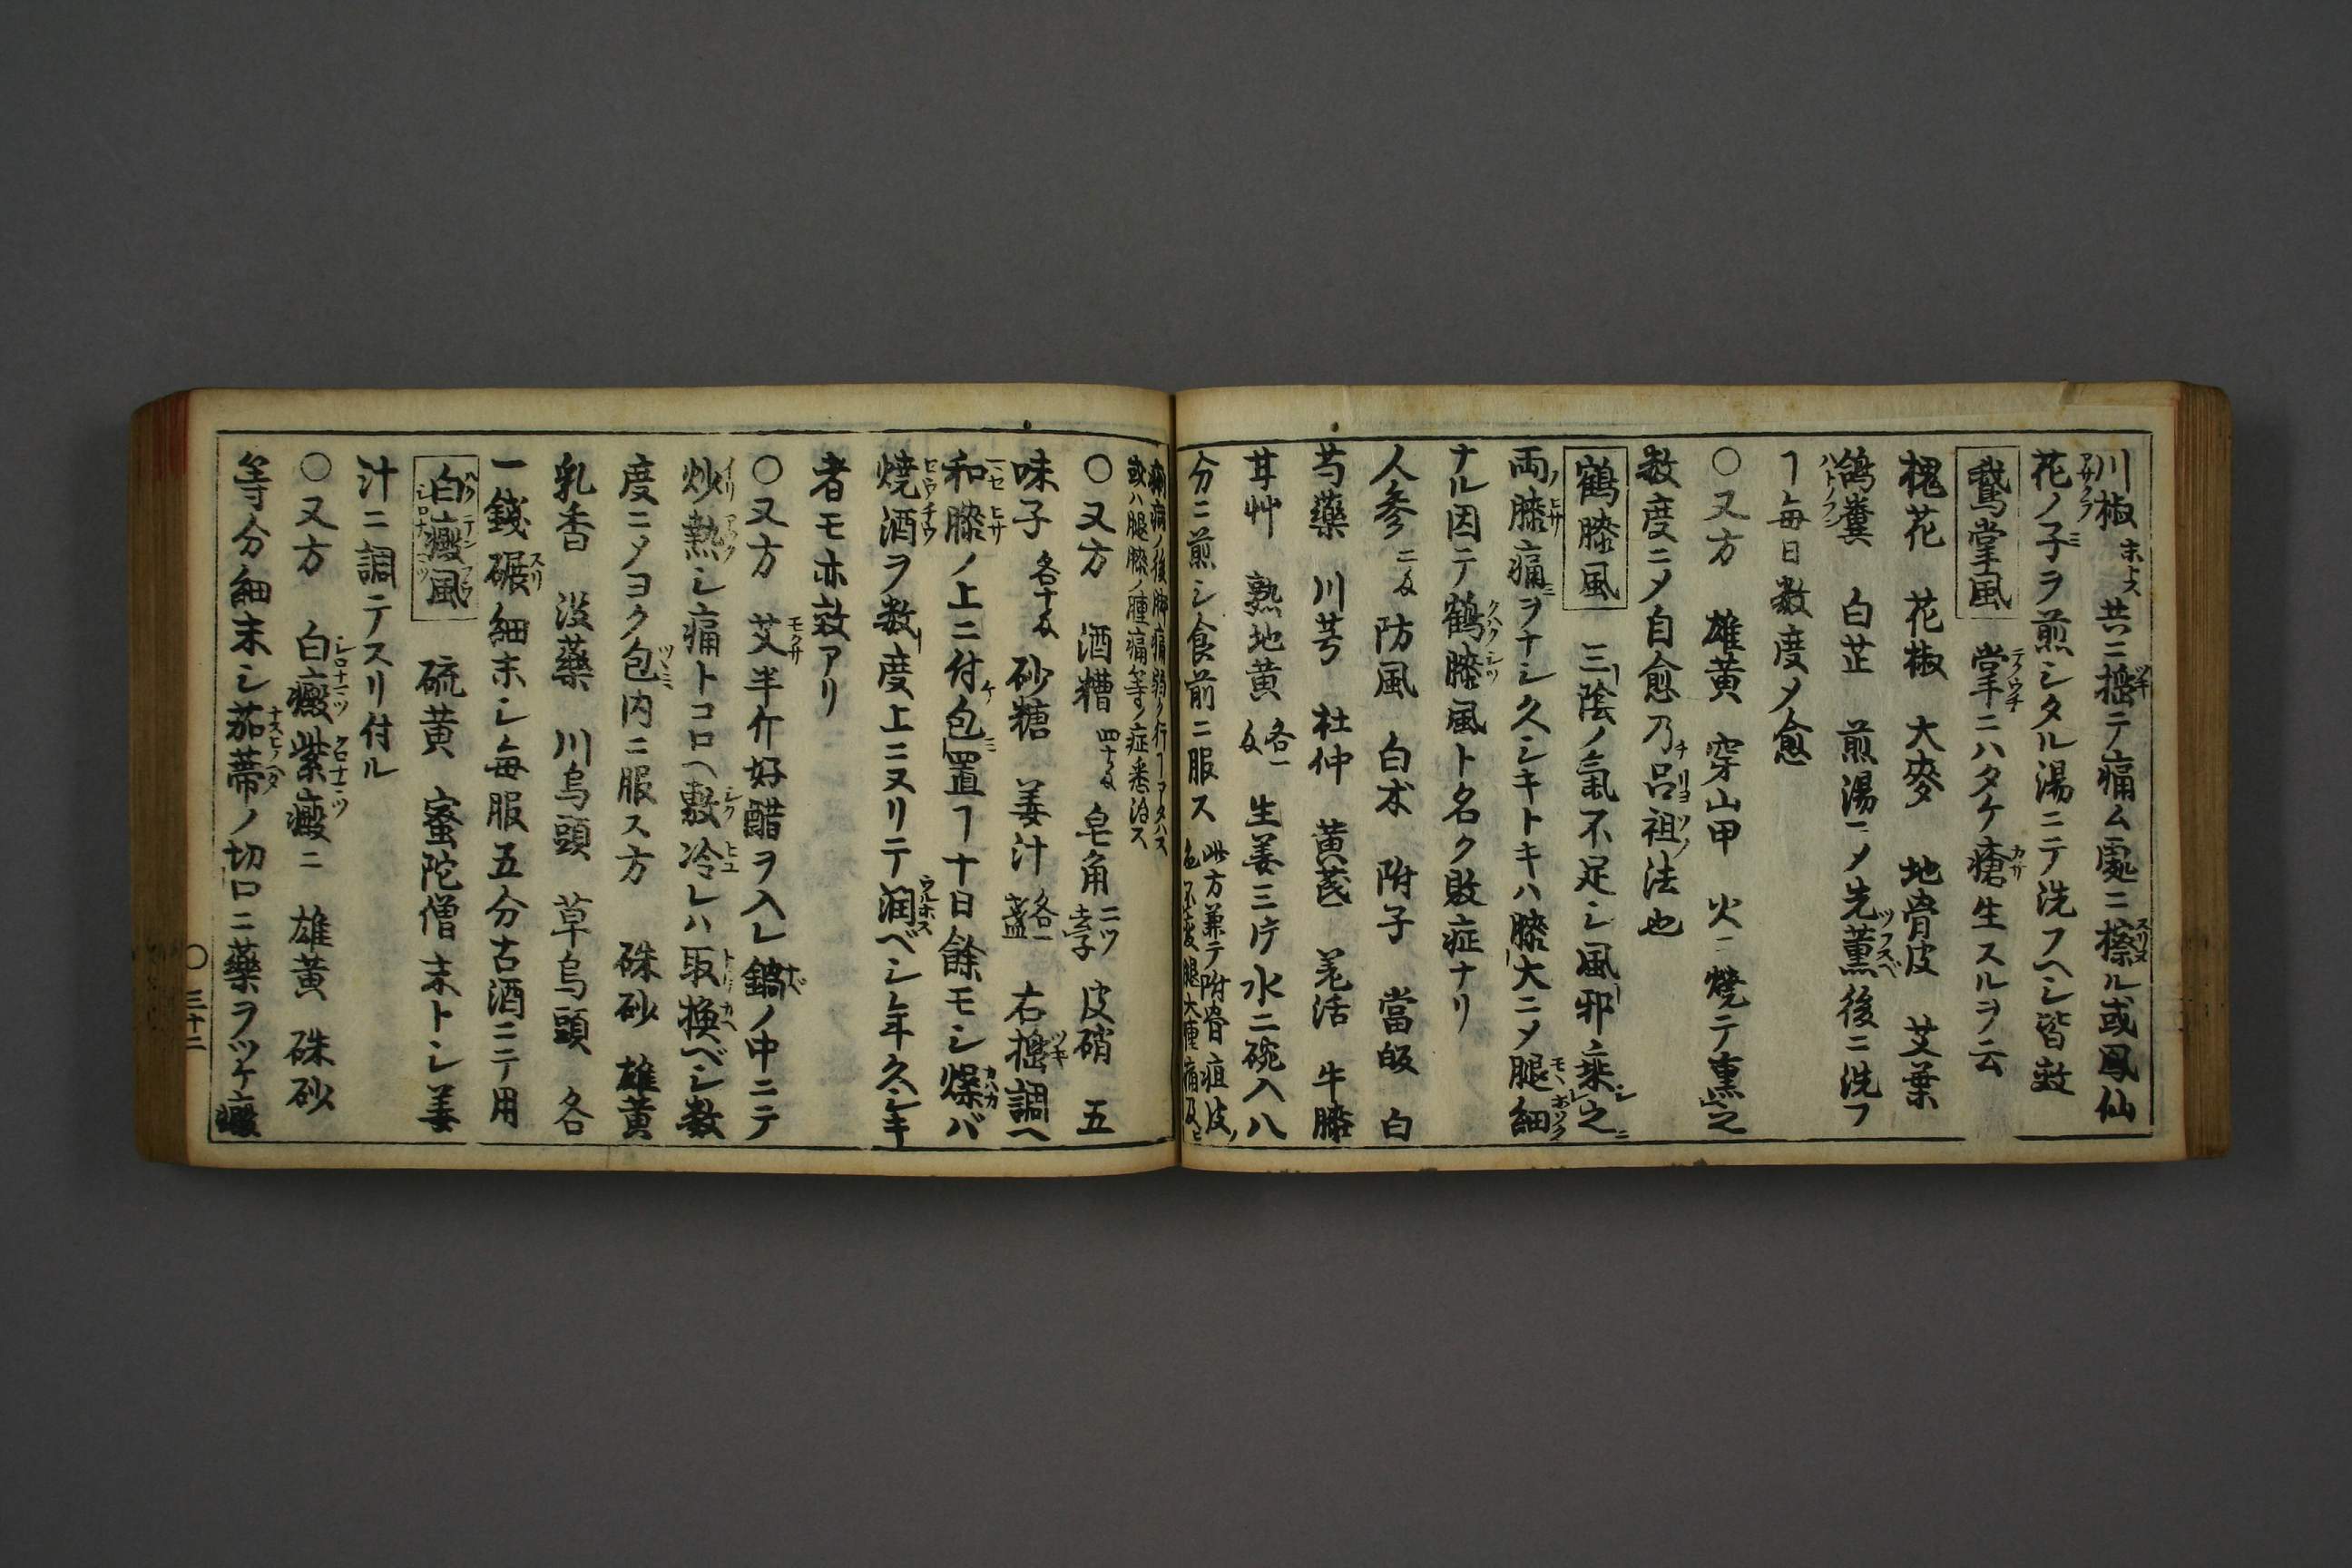 川椒末トス共ニ搗テ痛ム處ニ擦ル或鳳仙
花ノ子ヲ煎シタル湯ニテ洗フヘシ皆效
鵞掌風 掌ニハタケ瘡生スルヲ云
槐花 花椒 大麥 地骨皮 艾葉
鴿糞 白芷 煎湯ニメ先薫後ニ洗フ
ヿ毎日數度メ愈
〇又方 雄黄 穿山甲 火ニ燒テ熏之
数度ニメ自愈乃呂祖ノ法也
鶴膝風 三陰ノ氣不足シ風邪乗之
両膝痛ヲナシ久シキトキハ膝大ニメ腿細
ナル因テ鶴膝風ト名ク敗症ナリ
人参二匁 防風 白朮 附子 當皈 白
芍藥 川芎 杜仲 黄芪 羌活 牛膝
甘艸 熟地黄各一匁 生姜三片水二碗入八
分ニ煎シ食前ニ服ス 此方兼テ附骨疽皮ノ
色不変腿大腫痛及ヒ
痢病ノ後脚痛弱ク行ヿアタハス
或ハ腿膝ノ腫痛等ノ症悉治ス
〇又方 酒糟四十匁 皂角二ツ 皮硝 五
味子各十匁 砂糖 姜汁各一盞 右搗調ヘ
和膝ノ上ニ付包置ヿ十日餘モシ燥バ
燒酒ヲ数度上ニヌリテ潤ベシ年久シキ
者モ亦效アリ
〇又方 艾半斤好醋ヲ入レ鍋ノ中ニテ
炒熱シ痛トコロヘ敷冷レハ取換ベシ数
度ニメヨク包内ニ服ス方 硃砂 雄黄
乳香 没藥 川烏頭 草烏頭 各
一錢碾細末シ毎服五分古酒ニテ用
白癜風 硫黄 蜜陀僧末トシ姜
汁ニ調テスリ付ル
〇又方 白癜紫癜ニ 雄黄 硃砂
等分細末シ茄蔕ノ切口ニ藥ヲツケ癜
〇三十二